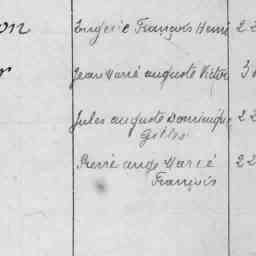 on Eugène François Henri 22
r Jean Marie auguste Victor 3
Jules auguste Dominique 22
Gilles
Pierre ange Marie 22
François